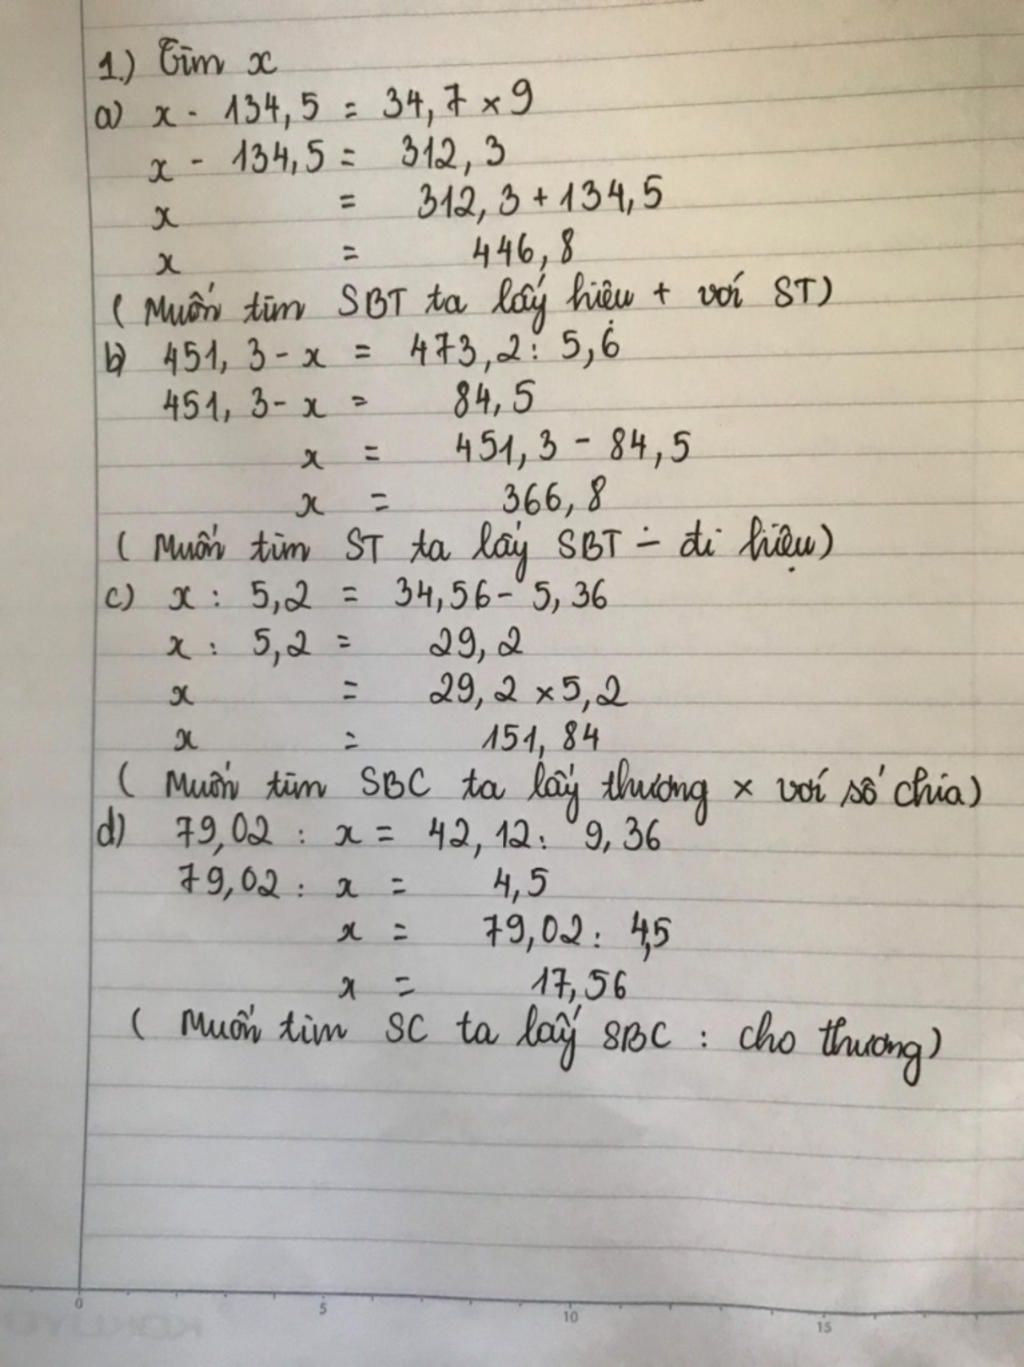 1.) Tìm x
a) x - 134,5 = 34,7 × 9
x - 134,5 = 312,3
x = 312,3 + 134,5
x = 446,8
( Muốn tìm SBT ta lấy hiệu + với ST)
b) 451,3 - x = 473,2 : 5,6
451,3 - x = 84,5
x = 451,3 - 84,5
x = 366,8
( Muốn tìm ST ta lấy SBT - đi hiệu)
c) x : 5,2 = 34,56 - 5,36
x : 5,2 = 29,2
x = 29,2 × 5,2
x = 151,84
( Muốn tìm SBC ta lấy thương × với số chia)
d) 79,02 : x = 42,12 : 9,36
79,02 : x = 4,5
x = 79,02 : 4,5
x = 17,56
( Muốn tìm SC ta lấy SBC : cho thương)
0 5 10 15